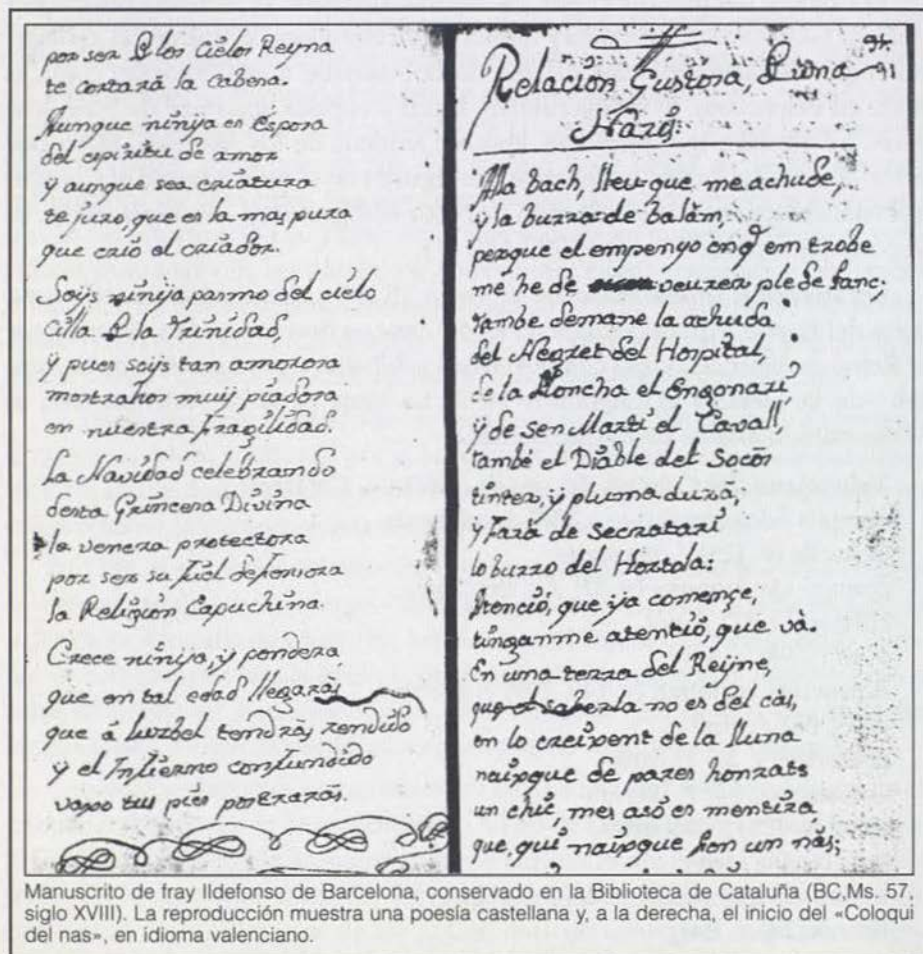 por ser de los Cielos Reyna
te cortará la Cabeza.
Aunque niñija es Esposa
del espiritu de amor
y aunque sea criatura
te juro, que es la mas pura
que crió el criador.
Soijs niñija pasmo del cielo
Cilla de la Trinidad,
y pues soijs tan amorosa
mostrahos muij piadosa
en nuestra fragilidad.
La Navidad celebrando
desta Princesa Divina
la venera protectora
por ser su fiel defensora
la Religión Capuchina.
Crece niñija, y pondera
que en tal edad llegarás
que á luzbel tendrás rendido
y el Infierno confundido
tus pies postrarás.
94.
91
Relacion Gustosa, de una
Naris.
bach, lleu que me achude,
y la burra de balám,
perque el empenyo en q̃ em trobe
me he de veurer ple de fanc;
tambe demane la achuda
del Negret del Hospital,
de la Loncha el Engonari,
y de sen Marti el Cavall,
també el Diable del Socós
tinter, y pluma durá,
y fará de secretari
lo burro del Hortola:
Atenció, que ija començe,
tinganme atenció, que vá.
En una terra del Reijne,
que el saberla no es del cas,
en lo creixent de la lluna
naixque de pares honrats
un chic, mes asó es mentira
que, qui naixque fon un nás;
Manuscrito de fray Ildefonso de Barcelona, conservado en la Biblioteca de Cataluña (BC,Ms. 57,
siglo XVIII). La reproducción muestra una poesía castellana y, a la derecha, el inicio del «Coloqui
del nas», en idioma valenciano.